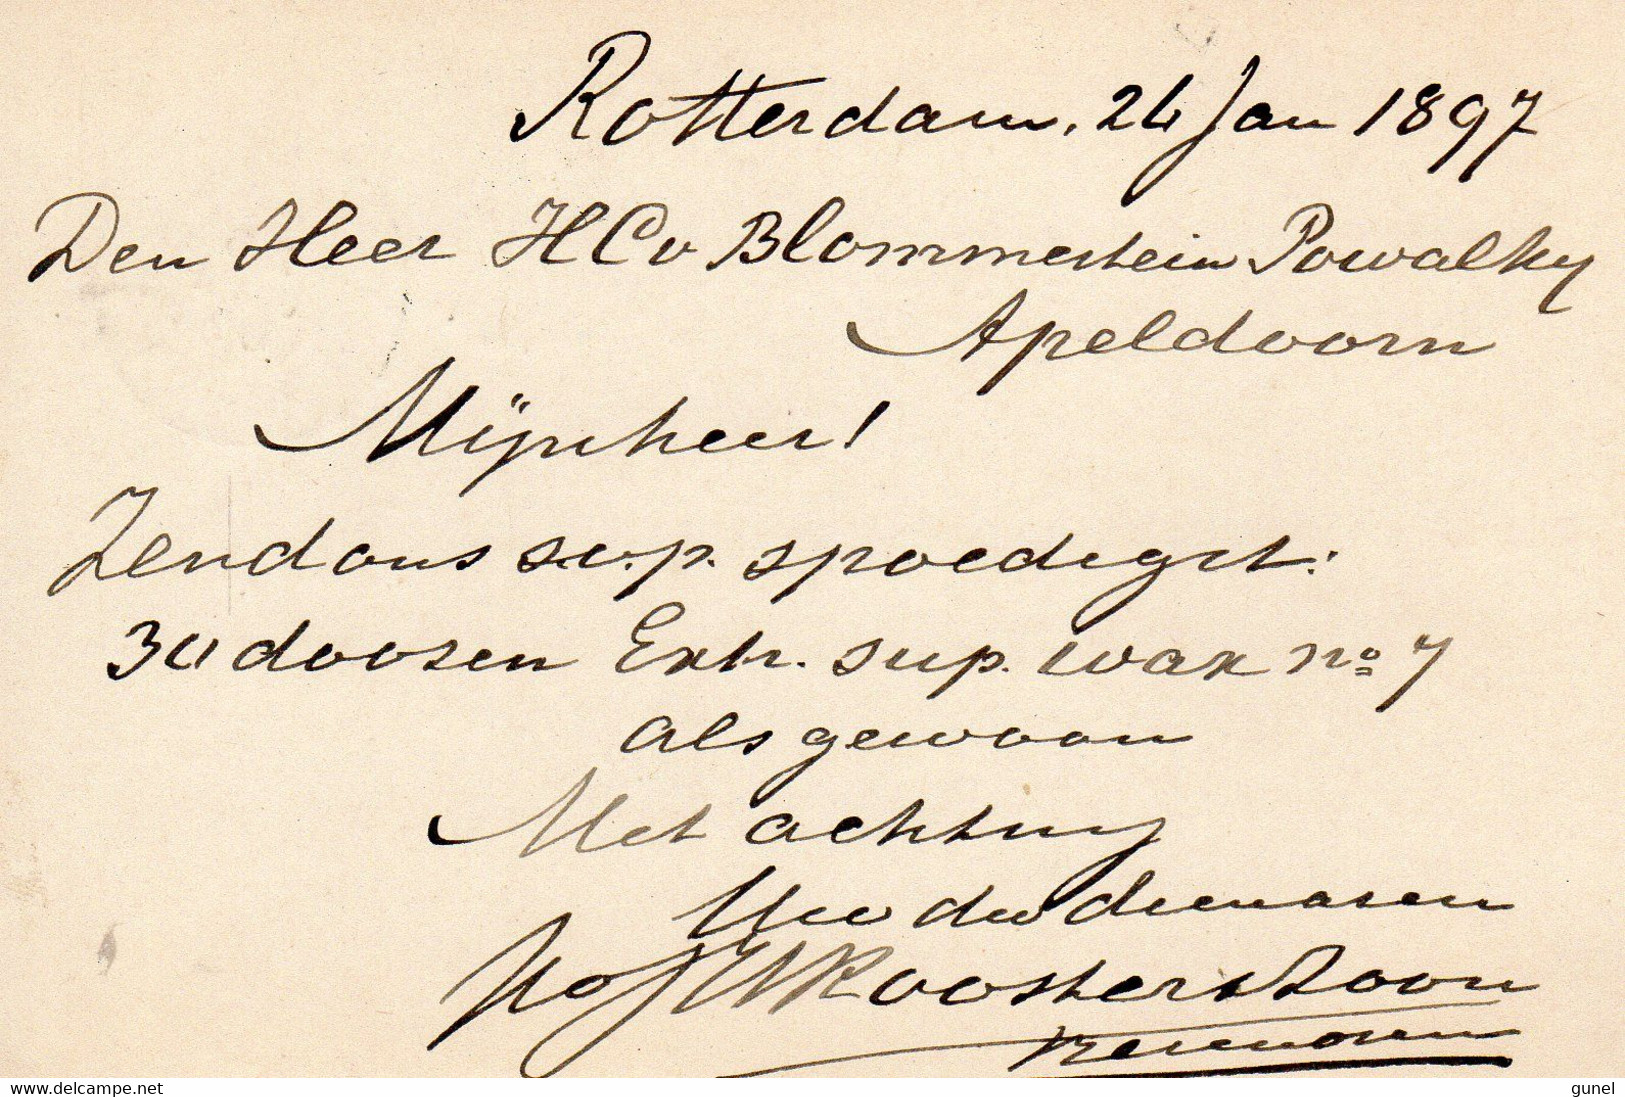 Rotterdam, 24 Jan 1897
Den Heer H C v Blommestein Powalky
Apeldoorn
Mijnheer!
Zend ons s.v.p. spoedigst:
30 doosen Extr. sup. wax no 7
als gewoon
Met achting
Uw dw dienaren
Rooster & Zoon
delcampe.net
gunel